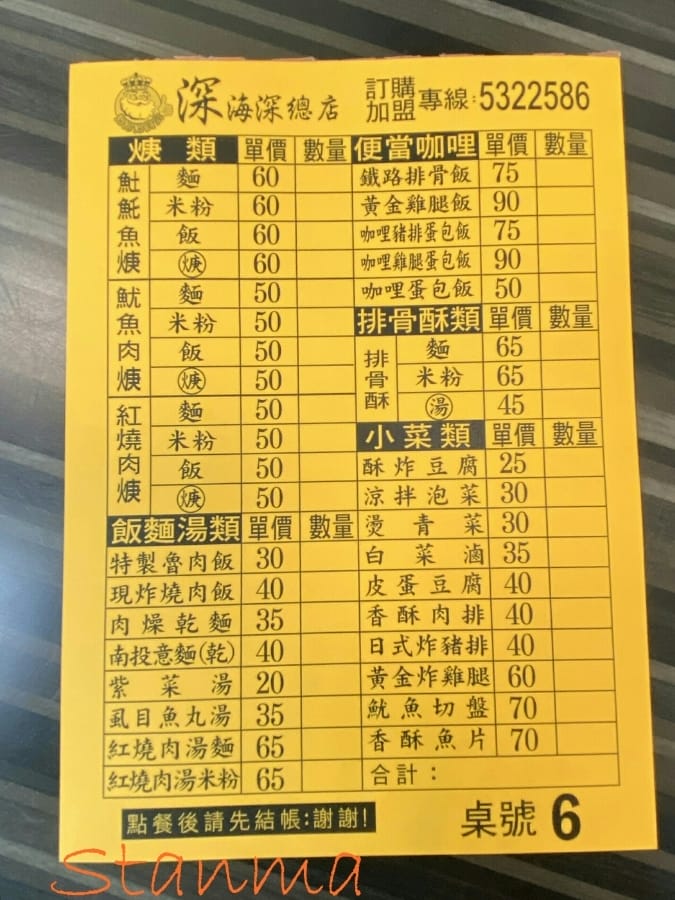 深海深總店 訂購加盟專線:5322586
焿類 單價 數量
魠魠魚焿 麵 60
米粉 60
飯 60
焿 60
魷魚肉焿 麵 50
米粉 50
飯 50
焿 50
紅燒肉焿 麵 50
米粉 50
飯 50
焿 50
飯麵湯類 單價 數量
特製魯肉飯 30
現炸燒肉飯 40
肉燥乾麵 35
南投意麵(乾) 40
紫菜湯 20
虱目魚丸湯 35
紅燒肉湯麵 65
紅燒肉湯米粉 65
便當咖哩 單價 數量
鐵路排骨飯 75
黃金雞腿飯 90
咖哩豬排蛋包飯 75
咖哩雞腿蛋包飯 90
咖哩蛋包飯 50
排骨酥類 單價 數量
排骨酥 麵 65
米粉 65
湯 45
小菜類 單價 數量
酥炸豆腐 25
涼拌泡菜 30
燙青菜 30
白菜滷 35
皮蛋豆腐 40
香酥肉排 40
日式炸豬排 40
黃金炸雞腿 60
魷魚切盤 70
香酥魚片 70
合計:
點餐後請先結帳:謝謝!
桌號 6
Stanma